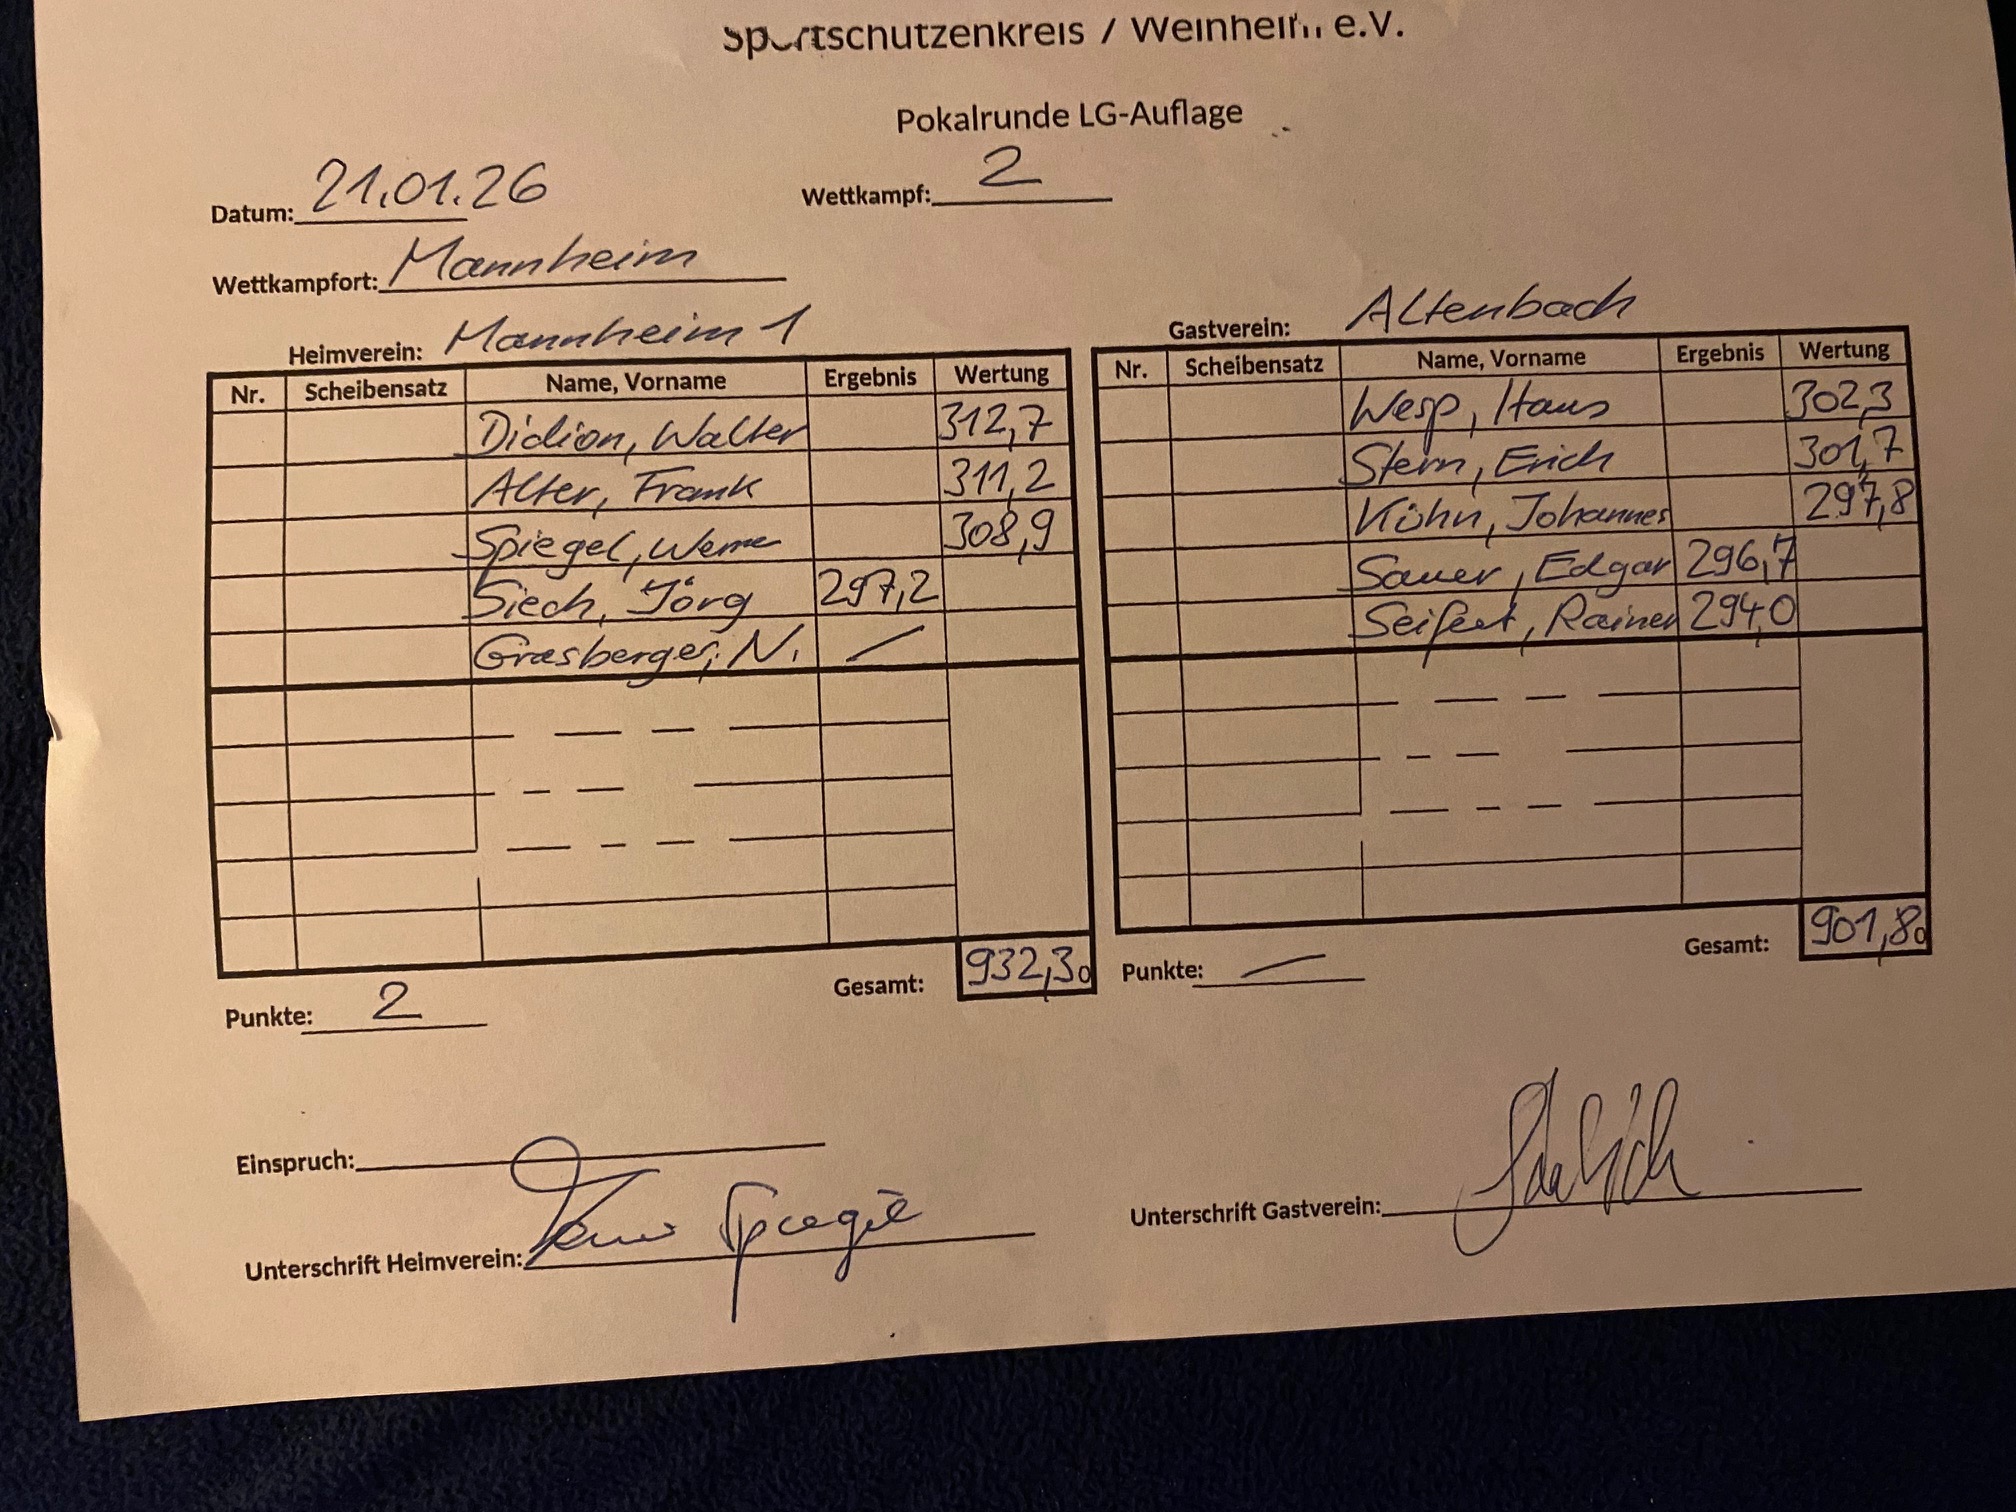 Sportschützenkreis / Weinheim e.V.
Pokalrunde LG-Auflage
Datum: 21.01.26 Wettkampf: 2
Wettkampfort: Mannheim
Heimverein: Mannheim 1
Nr. Scheibensatz Name, Vorname Ergebnis Wertung
Didion, Walter 312,7
Alter, Frank 311,2
Spiegel, Werne 308,9
Siech, Jörg 297,2
Grasberger, N. /
Gesamt: 932,30
Punkte: 2
Gastverein: Altenbach
Nr. Scheibensatz Name, Vorname Ergebnis Wertung
Wesp, Hans 302,3
Stern, Erich 301,7
Kühn, Johannes 297,8
Sauer, Edgar 296,7
Seifert, Rainer 294,0
Gesamt: 901,80
Punkte: —
Einspruch:
Unterschrift Heimverein: Spiegel
Unterschrift Gastverein: